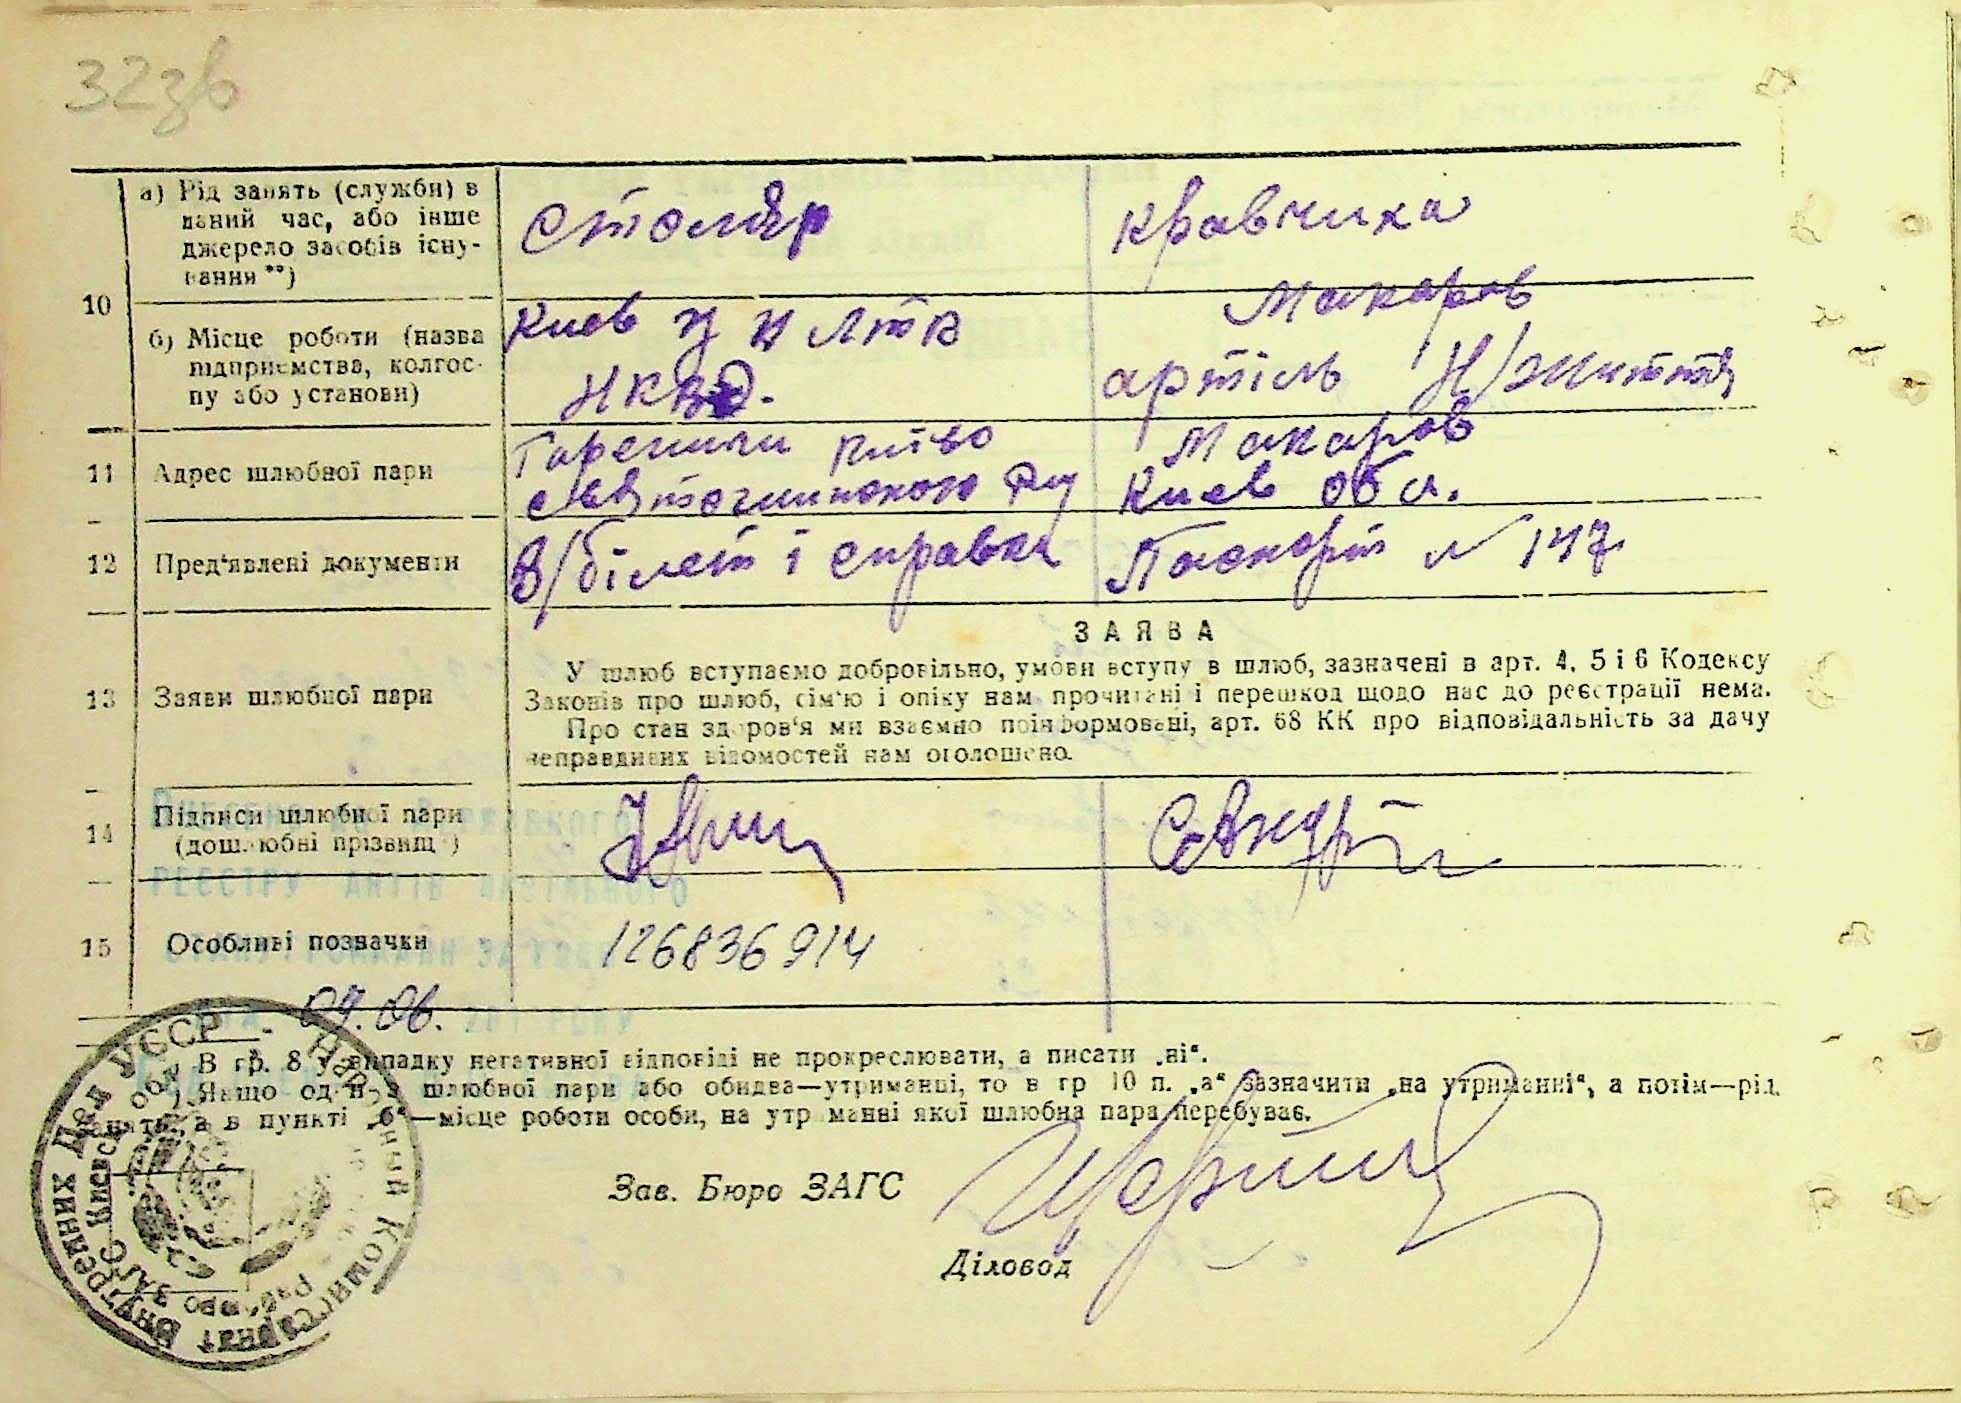 32зв
10
а) Рід занять (служби) в
даний час, або інше
джерело засобів існу-
вання **)
столяр
кравчиха
б) Місце роботи (назва
підприємства, колгос-
пу або установи)
Киев
НКВД.
Макаров
артіль Н/життя
11
Адрес шлюбної пари
Гореничи Києво
Святошинского
Макаров
Киев обл.
12
Пред'явлені документи
В/білет і справка
Паспорт № 147
13
Заяви шлюбної пари
ЗАЯВА
У шлюб вступаємо добровільно, умови вступу в шлюб, зазначені в арт. 4, 5 і 6 Кодексу
Законів про шлюб, сім'ю і опіку нам прочитані і перешкод щодо нас до реєстрації нема.
Про стан здоров'я ми взаємно поінформовані, арт. 68 КК про відповідальність за дачу
неправдивих відомостей нам оголошено.
14
Підписи шлюбної пари
(дошлюбні прізвищ )
РЕЄСТРУ АКТІВ ЦИВІЛЬНОГО
15
Особливі позначки
126836914
СТАНУ ГРОМАДЯН ЗА
09.06. 201 РОКУ
В гр. 8 у випадку негативної відповіді не прокреслювати, а писати „ні“.
Якщо один з шлюбної пари або обидва—утриманці, то в гр 10 п. „а“ зазначити „на утриманні“, а потім—рід
занять, а в пункті „б“—місце роботи особи, на утриманні якої шлюбна пара перебуває.
Зав. Бюро ЗАГС
Діловод
Народний Комиссариат Внутренних Дел УССР
ЗАГС Киевск обл